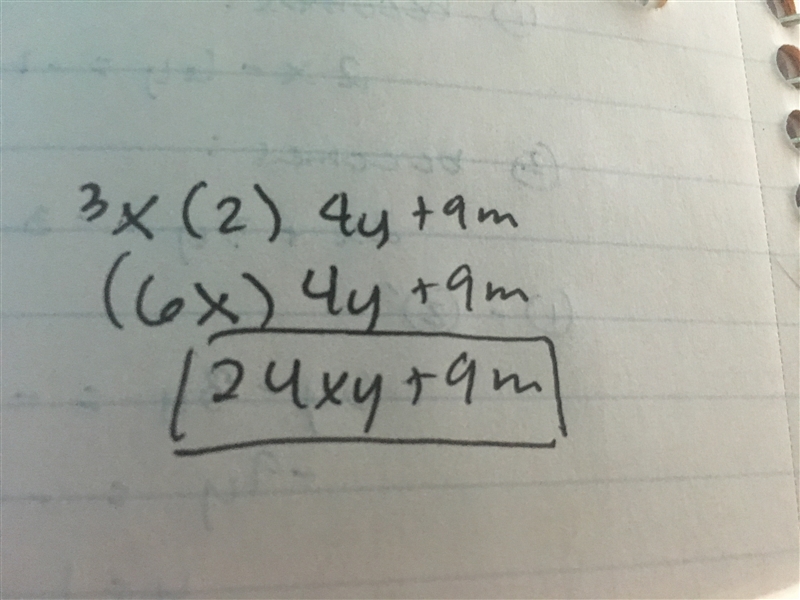 3x (2) 4y + 9m
(6x) 4y + 9m
24xy + 9m